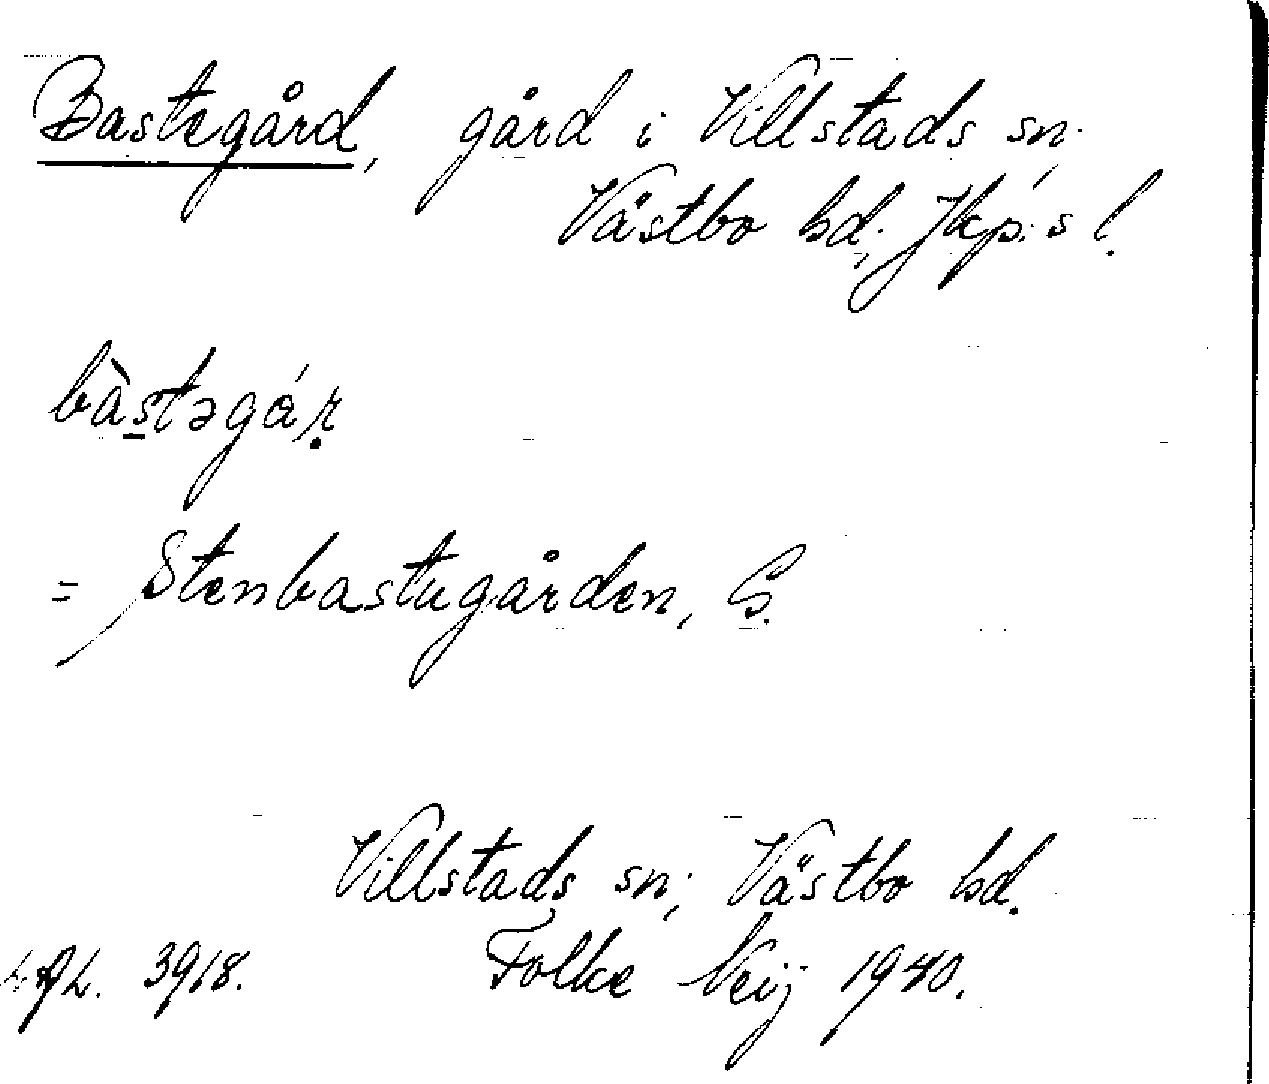 Bastegård, gård i Villstads sn.
Västbo hd. Jkp:s l.
bàstəgár
= Stenbastugården, S.
Villstads sn; Västbo hd.
3918. Folke 1940.